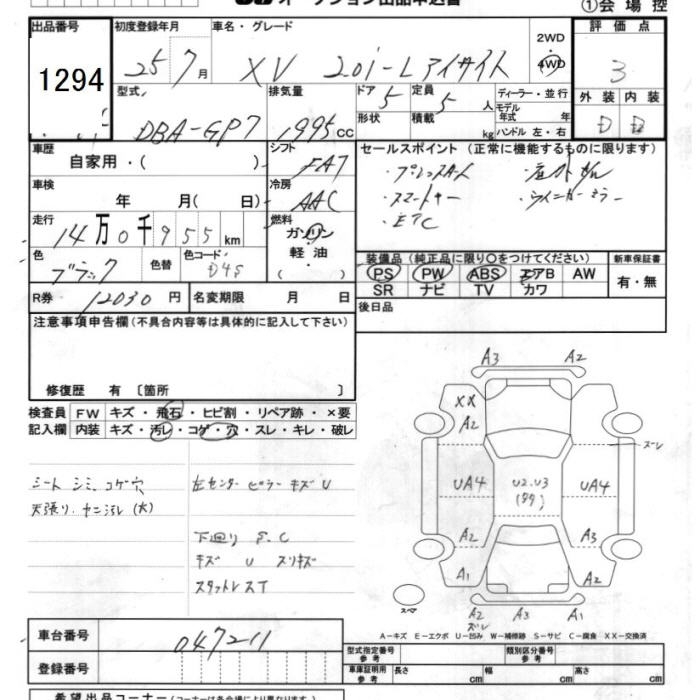 ①会場控
出品番号
1294
初度登録年月
25 7月
車名・グレード
XV 2.0i-L アイサイト
2WD
4WD
評価点
3
型式
DBA-GP7
排気量
1995 cc
ドア 5
定員 5 人
形状
積載 kg
ディーラー・並行
モデル年式 年
ハンドル 左・右
外装 内装
D D
車歴
自家用・( )
シフト
FAT
セールスポイント (正常に機能するものに限ります)
・プッシュスタート
・スマートキー
・ETC
・ウインカーミラー
車検
年 月( 日)
冷房
AAC
走行
14万0千955km
燃料
ガソリン
・
軽油
( )
色
ブラック
色替
色コード
D4S
装備品 (純正品に限り○をつけてください)
PS PW ABS エアB AW
SR ナビ TV カワ
新車保証書
有・無
R券 12030 円
名変期限 月 日
後日品
注意事項申告欄(不具合内容等は具体的に記入して下さい)
修復歴 有 〔箇所 〕
検査員記入欄
FW キズ・飛石・ヒビ割・リペア跡・×要
内装 キズ・汚レ・コゲ・穴・スレ・キレ・破レ
シート シミ、コゲ穴
天張り、ヤニ汚レ(大)
左センターピラーキズU
下廻り S、C
キズ U スリキズ
スタットレスT
A3 A2
XX
A2
ズレ
UA4
U2、U3
UA4
A2
A3
A1
A2
A2
ズレ
A3
A1
スペア
A－キズ E－エクボ U－凹み W－補修跡 S－サビ C－腐食 XX－交換済
車台番号
047211
登録番号
型式指定番号
参考
類別区分番号
参考
車庫証明用
参考
長さ cm
幅 cm
高さ cm